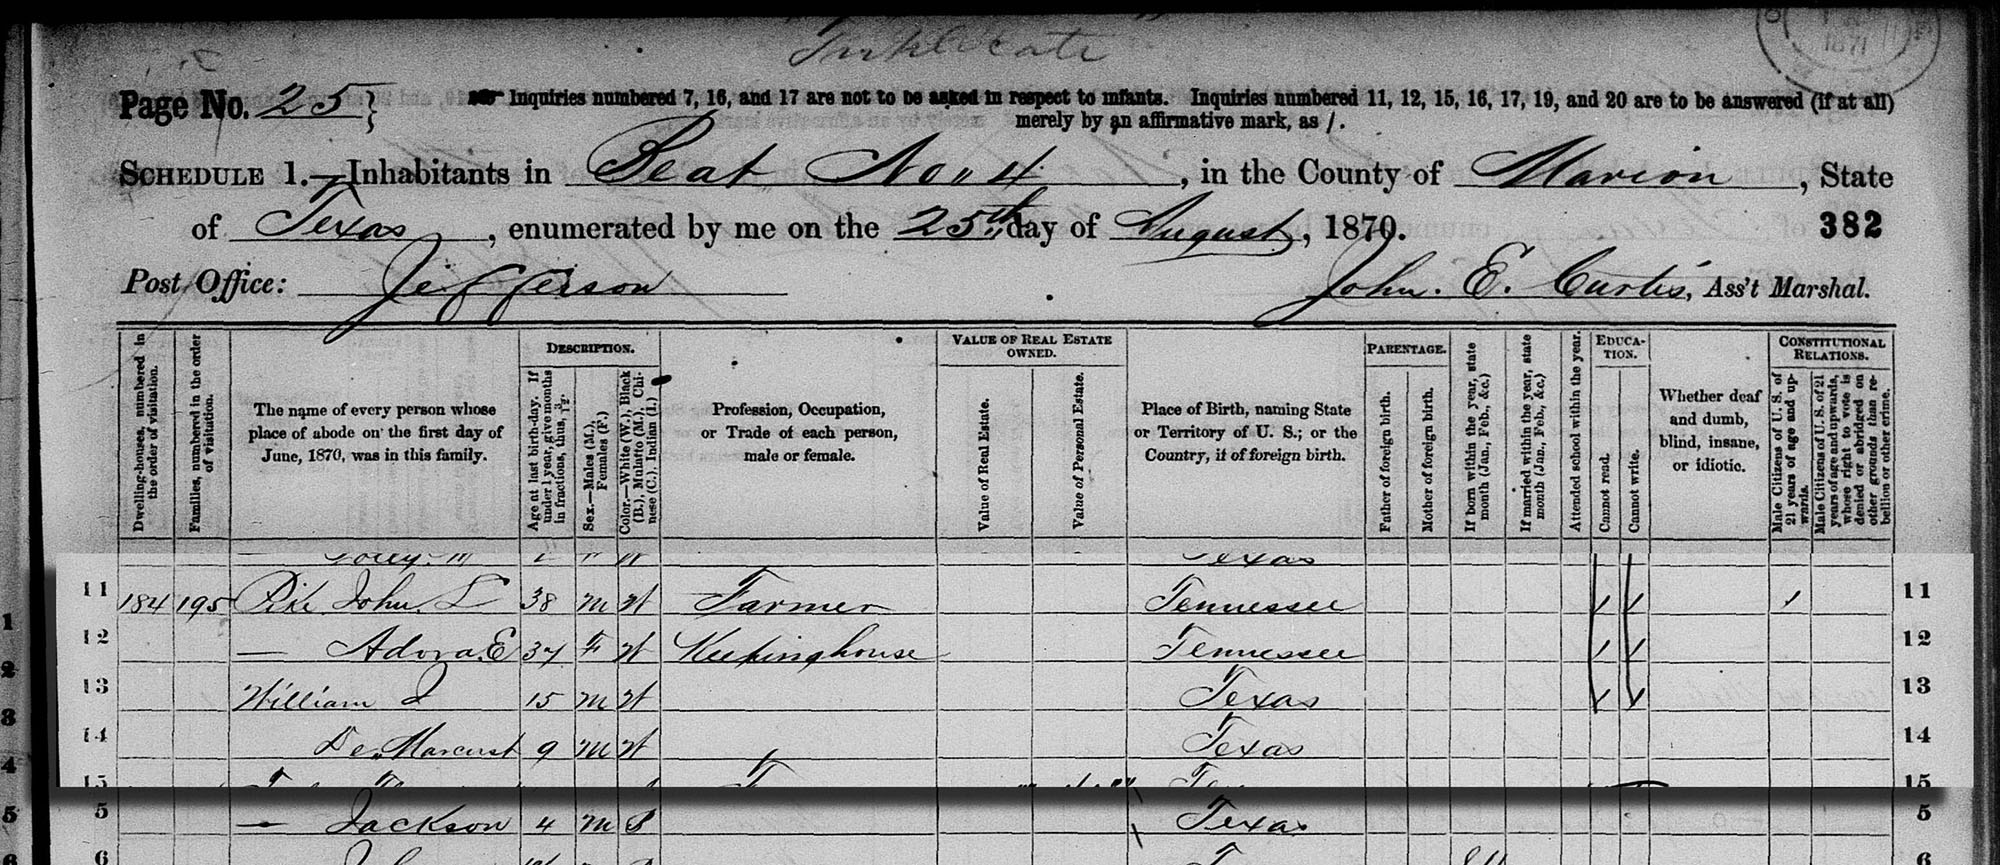 Page No. 25} Inquiries numbered 7, 16, and 17 are not to be asked in respect to infants. Inquiries numbered 11, 12, 15, 16, 17, 19, and 20 are to be answered (if at all)
merely by an affirmative mark, as /.
1871
SCHEDULE 1.—Inhabitants in Beat No 4, in the County of Marion, State
of Texas, enumerated by me on the 25th day of August, 1870.
382
Post Office: Jefferson
John. E. Curtis, Ass't Marshal.
Dwelling-houses, numbered in the order of visitation.
Families, numbered in the order of visitation.
The name of every person whose
place of abode on the first day of
June, 1870, was in this family.
DESCRIPTION.
Age at last birth-day. If under 1 year, give months in fractions, thus, 3/12.
Sex.—Males (M.), Females (F.)
Color.—White (W.), Black (B.), Mulatto (M.), Chinese (C.), Indian (I.)
Profession, Occupation,
or Trade of each person,
male or female.
VALUE OF REAL ESTATE
OWNED.
Value of Real Estate.
Value of Personal Estate.
Place of Birth, naming State
or Territory of U. S.; or the
Country, if of foreign birth.
PARENTAGE.
Father of foreign birth.
Mother of foreign birth.
If born within the year, state month (Jan., Feb., &c.)
If married within the year, state month (Jan., Feb., &c.)
Attended school within the year.
EDUCA-
TION.
Cannot read.
Cannot write.
Whether deaf
and dumb,
blind, insane,
or idiotic.
CONSTITUTIONAL
RELATIONS.
Male Citizens of U. S. of 21 years of age and upwards.
Male Citizens of U. S. of 21 years of age and upwards, whose right to vote is denied or abridged on other grounds than rebellion or other crime.
Texas
11 184 195 Pike John. L 38 M W Farmer Tennessee / / / 11
12 — Adora. E 37 F W Keeping house Tennessee / / 12
13 William J 15 M W Texas / / 13
14 De Marcust 9 M W Texas 14
15 15
5 — Jackson 4 M B Texas 5
6 6
1
2
3
4
5
6